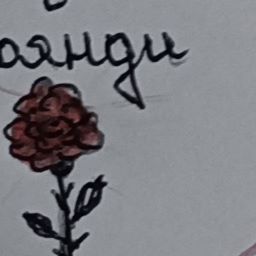 оянди